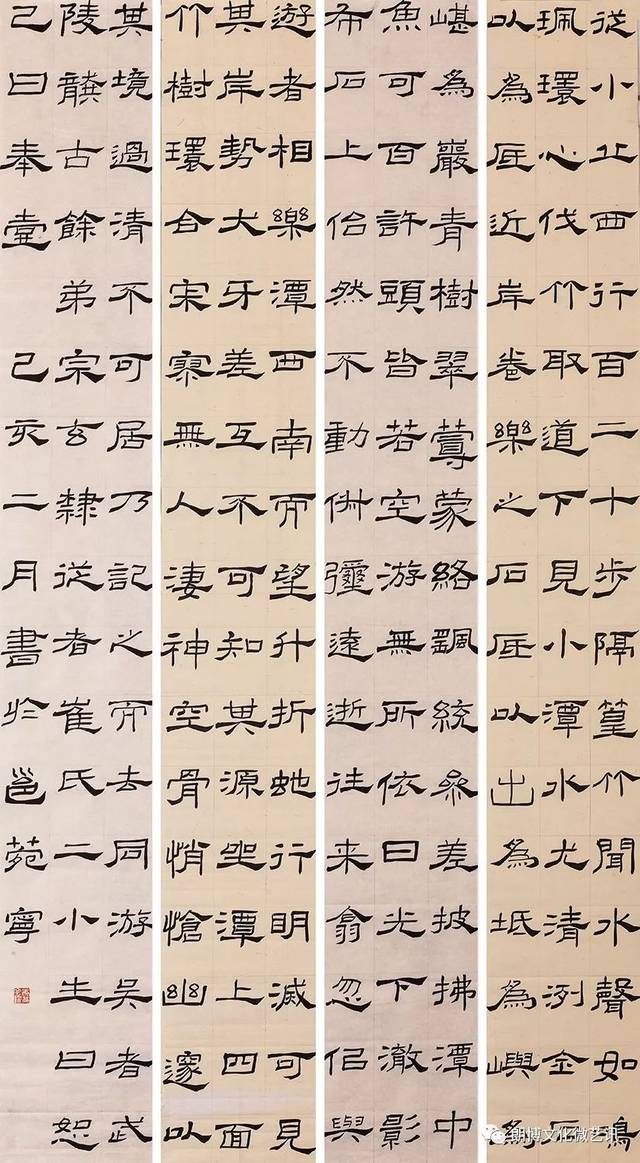 從小丘西行百二十步隔篁竹聞水聲如鳴
珮環心伐竹取道下見小潭水尤清洌全石
以為底近岸卷樂之石底以出為坻為嶼為
嵁為巖青樹翠蔓蒙絡飄統參差披拂潭中
魚可百許頭皆若空游無所依日光下澈影
布石上佁然不動俶彌遠逝往来翕忽佀與
遊者相樂潭西南而望斗折虵行明滅可見
其岸勢犬牙差互不可知其源坐潭上四面
竹樹環合寂寥無人淒神空骨悄愴幽邃以
其境過清不可居乃記之而去同游吳者武
陵龔古餘弟宗玄隸從者崔氏二小生曰恕
己曰奉壹己亥二月書於邕苑寧
朗博文化微艺讯